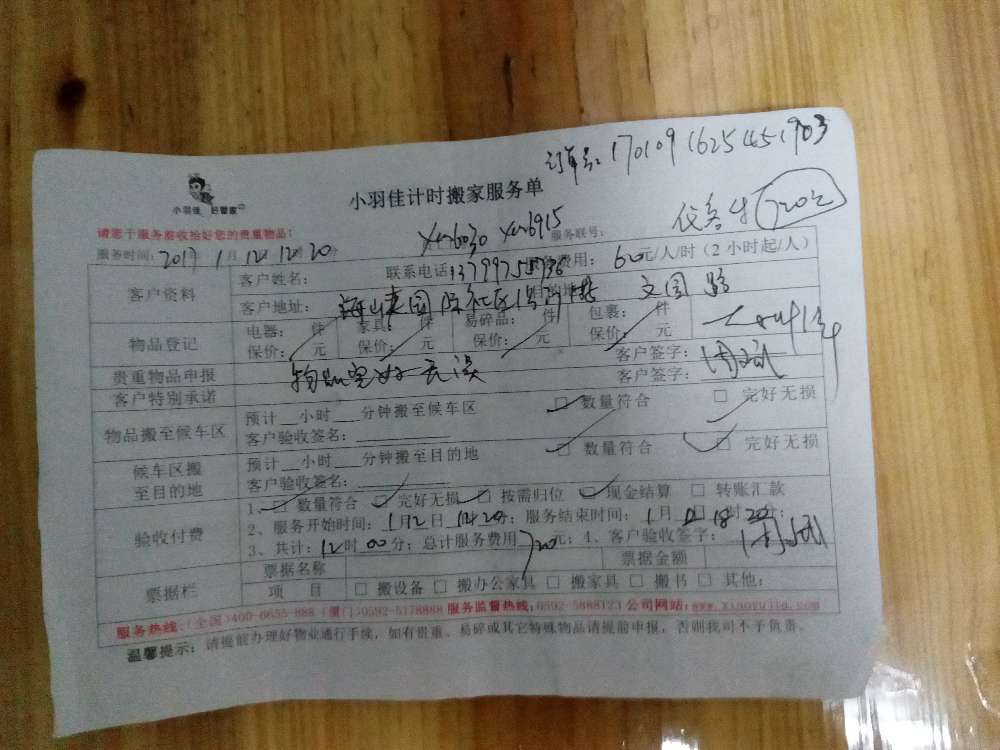 订单号: 170109162545 1903
小羽佳 好管家
小羽佳计时搬家服务单
720元
请您于服务前收拾好您的贵重物品!
服务联号:
服务时间: 2017年1月12日12时20分
客户资料
客户姓名: 联系电话: 费用: 60元/人/时(2小时起/人)
客户地址: 目的地: 文园路
物品登记
电器: 件 家具: 件 易碎品: 件 包裹: 件
保价: 元 保价: 元 保价: 元 保价: 元
贵重物品申报 客户签字:
客户特别承诺 物品完好无误 客户签字:
物品搬至候车区
预计__小时__分钟搬至候车区 □ 数量符合 □ 完好无损
客户验收签名:
候车区搬至目的地
预计__小时__分钟搬至目的地 □ 数量符合 □ 完好无损
客户验收签名:
验收付费
1、□ 数量符合 □ 完好无损 □ 按需归位 □ 现金结算 □ 转账汇款
2、服务开始时间: 1月12日12时20分; 服务结束时间: 1月12日18时20分;
3、共计: 12时00分; 总计服务费用720元; 4、客户验收签字:
票据栏
票据名称 票据金额
项 目 □ 搬设备 □ 搬办公家具 □ 搬家具 □ 搬书 □ 其他:
服务热线:(全国)400-6655-888 (厦门)0592-5178888 服务监督热线:0592-5888123 公司网站:www.xiaoyujia.com
温馨提示: 请提前办理好物业通行手续, 如有贵重、易碎或其它特殊物品请提前申报, 否则我司不予负责。